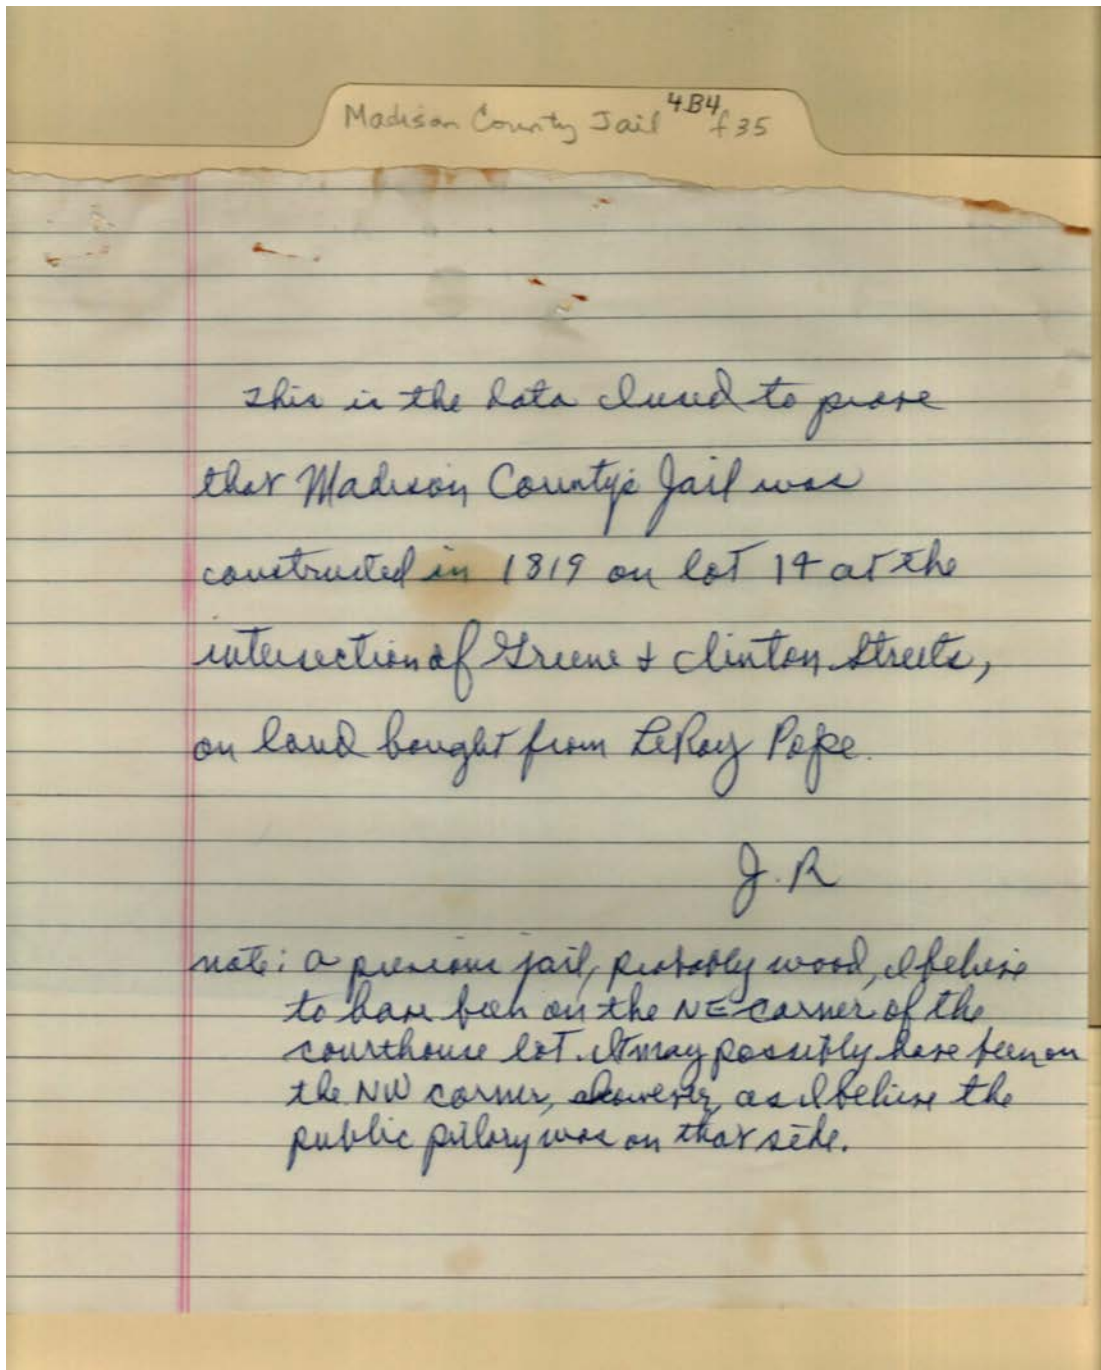 Madison County Jail 4B4 f35
This is the data I used to prove
that Madison County's Jail was
constructed in 1819 on lot 14 at the
intersection of Greene & Clinton Streets,
on land bought from LeRoy Pope.
J.R
note: a previous jail, probably wood, I believe
to have been on the NE corner of the
courthouse lot. It may possibly have been on
the NW corner, however, as I believe the
public pillory was on that side.